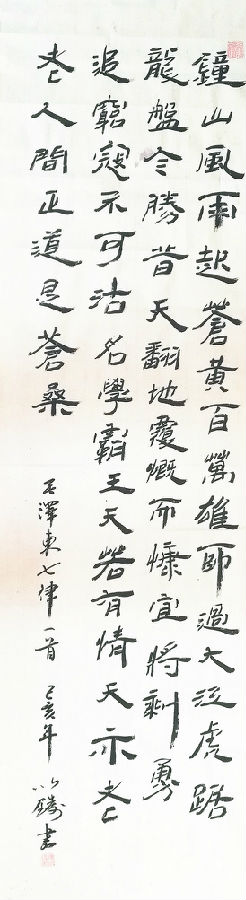 鐘山風雨起蒼黃百萬雄師過大江虎踞
龍盤今勝昔天翻地覆慨而慷宜將剩勇
追窮寇不可沽名學霸王天若有情天亦老
老人間正道是蒼桑
毛澤東七律一首 己亥年 書